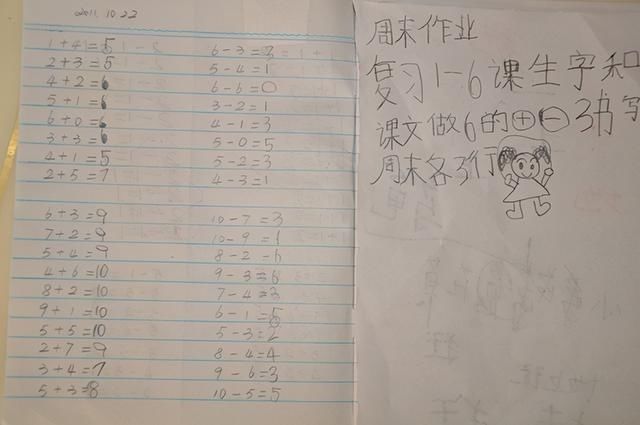 2011.10.22
1+4=5
2+3=5
4+2=6
5+1=6
6+0=6
3+3=6
4+1=5
2+5=7
6+3=9
7+2=9
5+4=9
4+6=10
8+2=10
9+1=10
5+5=10
2+7=9
3+4=7
5+3=8
6-3=3
5-4=1
6-6=0
3-2=1
4-1=3
5-0=5
5-2=3
4-3=1
10-7=3
10-9=1
8-2=6
9-3=6
7-4=3
6-1=5
5-3=2
8-4=4
9-6=3
10-5=5
周末作业
复习1-6课生字和
课文做6的⊕⊖书写
周末各3行